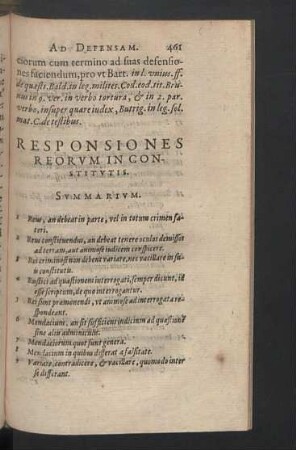 AD DEFENSAM. 461
ctorum cum termino ad suas defensio-
nes faciendum, pro vt Bart. in l. vnius. ff.
de quæst. Bald. in leg. milites. Cod. eod. tit. Bru-
nus in 9. ver. in verbo tortura, & in 2. par.
verbo, insuper quare index, Buttig. in leg. sol.
mat. C. de testibus.
RESPONSIONES
REORVM IN CON-
STITVTIS.
SVMMARIVM.
1 Reus, an debeat in parte, vel in totum crimen fa-
teri.
2 Reus constituendus, an debeat tenere oculos demissos
ad terram, aut animosè iudicem conspicere.
3 Rei criminosi non debent variare, nec vacillare in
suis constitutis.
4 Rustici ad quæstionem interrogati, semper dicunt, id
esse scriptum, de quo interrogantur.
5 Rei sunt præmonendi, vt animosè ad interrogata re-
spondeant.
6 Mendacium, an sit sufficiens indicium ad quæstionem
sine alio adminiculo.
7 Mendaciorum quot sunt genera.
8 Mendacium in quibus differat a falsitate.
9 Variare, contradicere, & vacillare, quomodo inter
se differant.